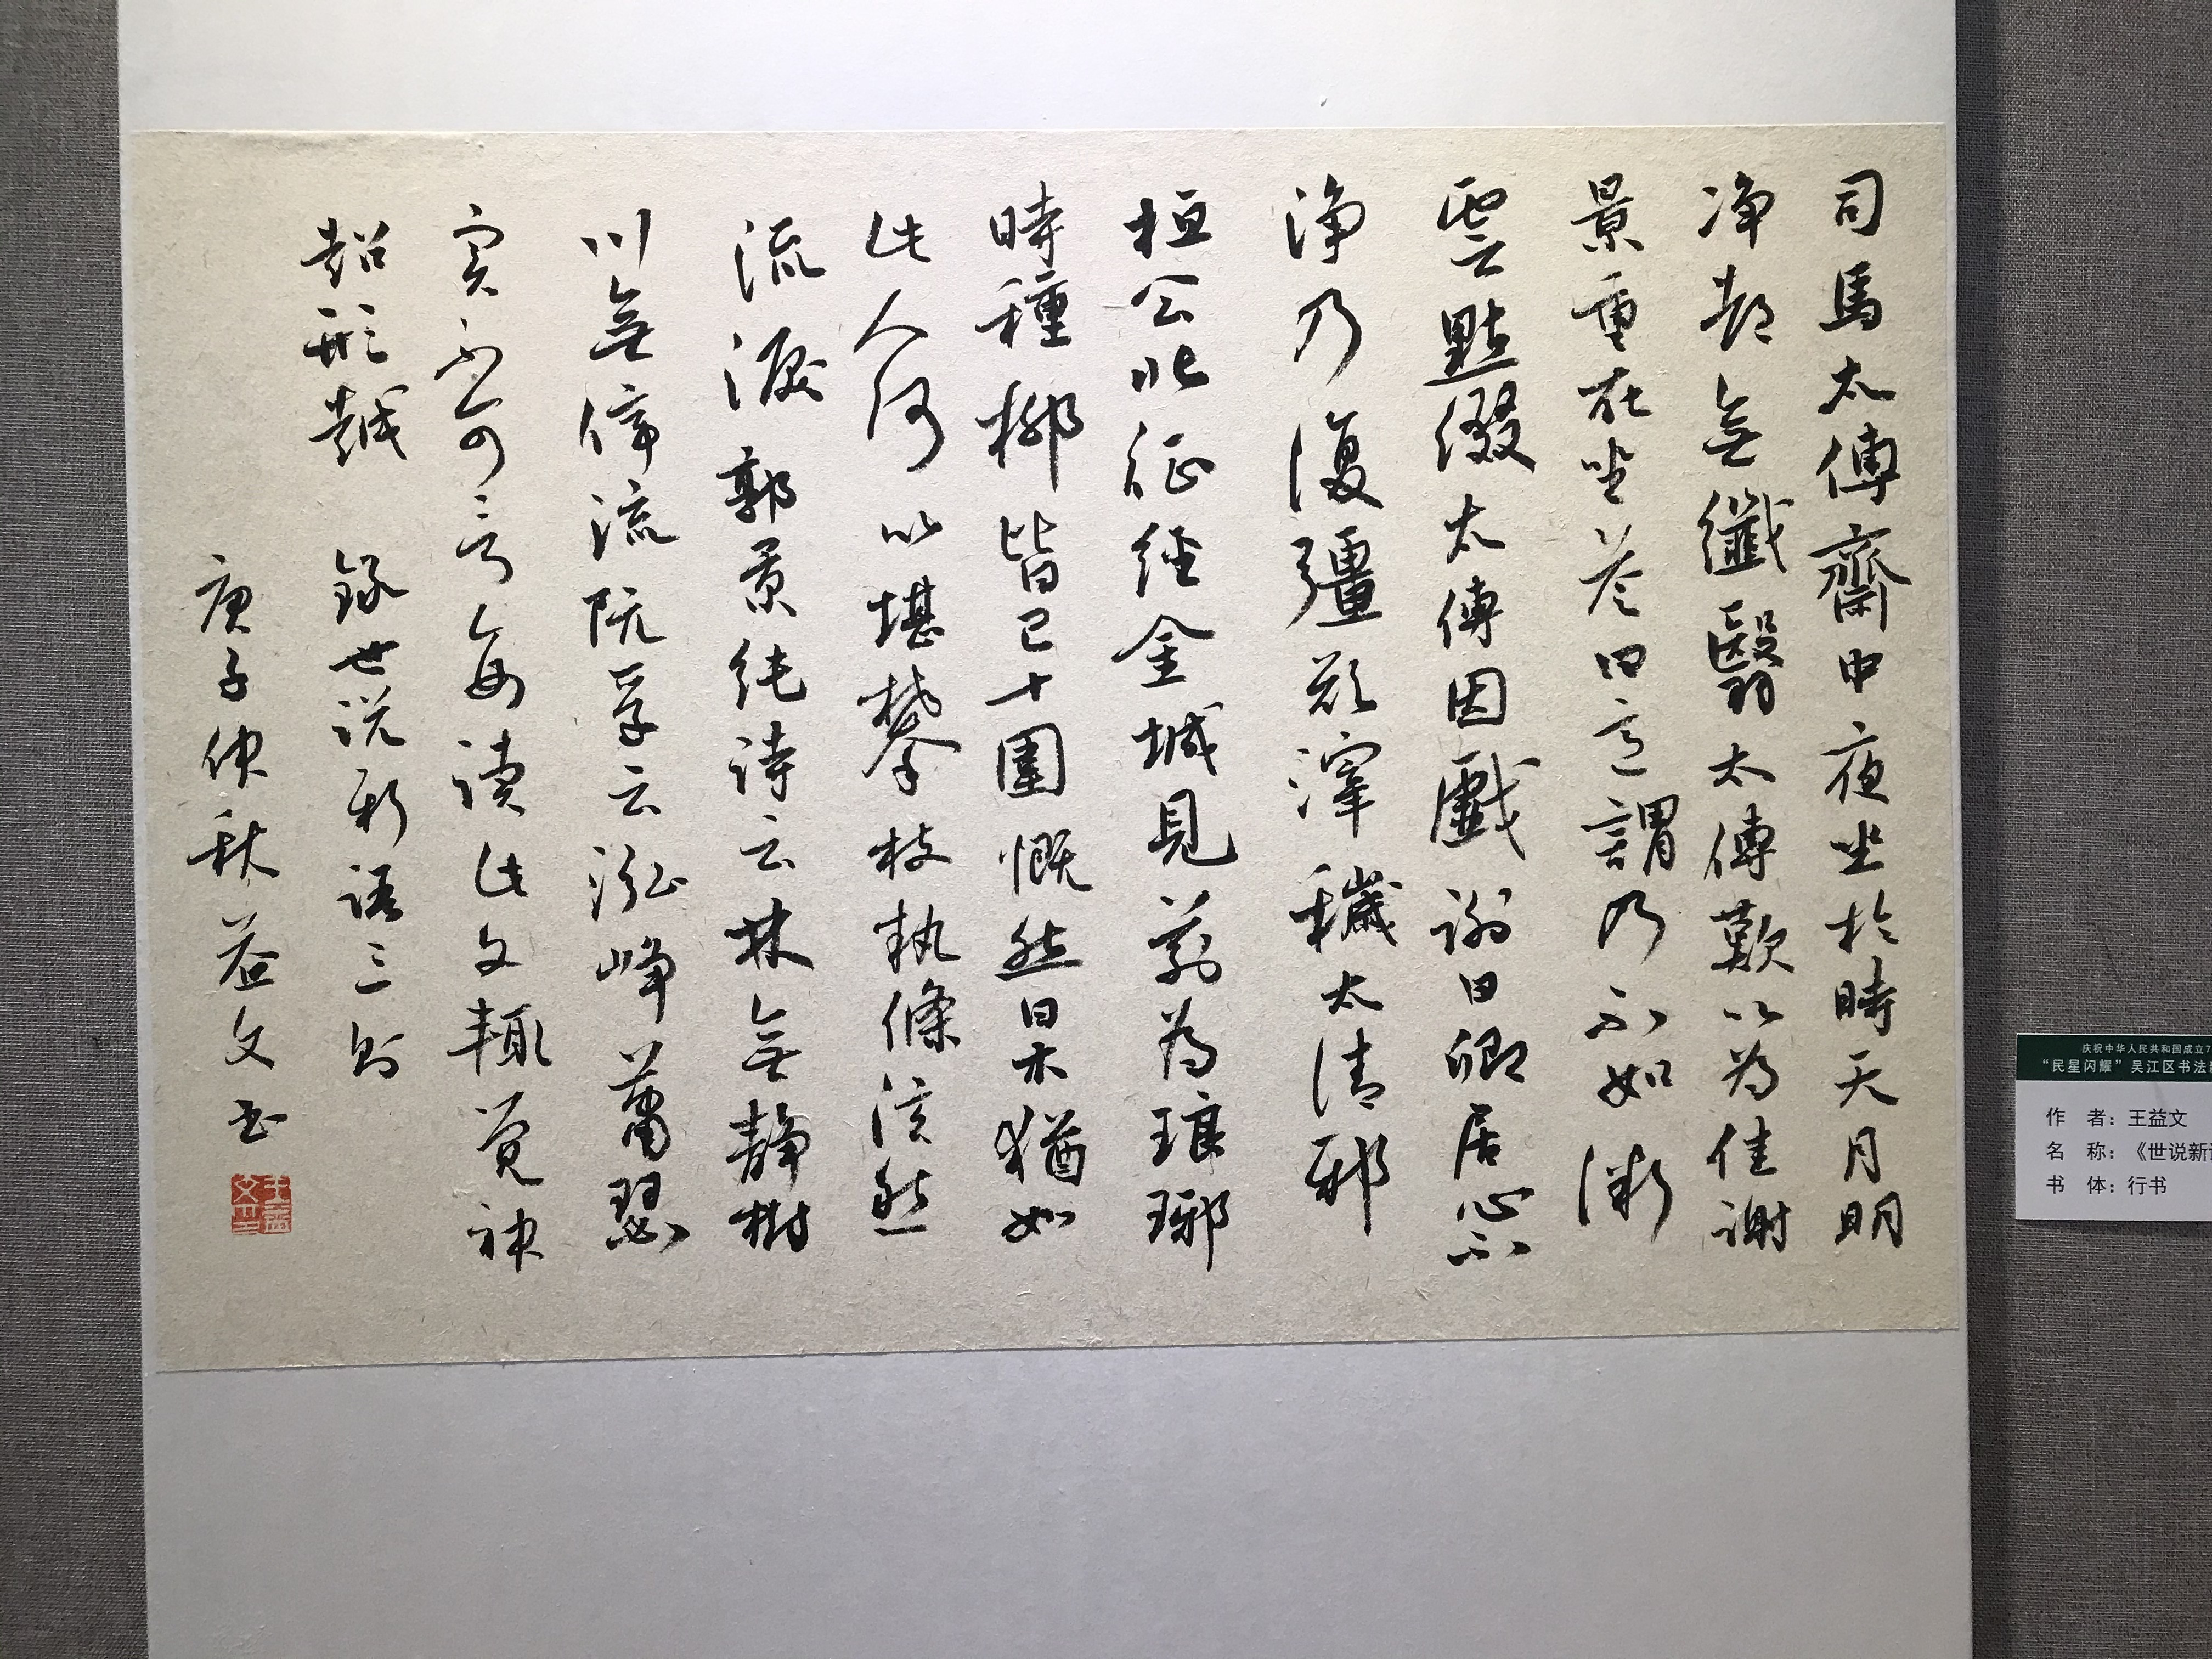 司馬太傅齋中夜坐於時天月明
净都無纖翳太傅歎以為佳謝
景重在坐答曰意謂乃不如微
雲點綴太傅因戲謝曰卿居心不
淨乃復彊欲滓穢太清邪
桓公北征經金城見前為琅琊
時種柳皆已十圍慨然曰木猶如
此人何以堪攀枝執條泫然
流淚郭景純詩云林無靜樹
川無停流阮孚云泓崢蕭瑟
实不可言每讀此文輒覺神
超形越 録世説新語三則
庚子仲秋益文书
王益文印
庆祝中华人民共和国成立7
“民星闪耀”吴江区书法
作 者：王益文
名 称：《世说新
书 体：行书